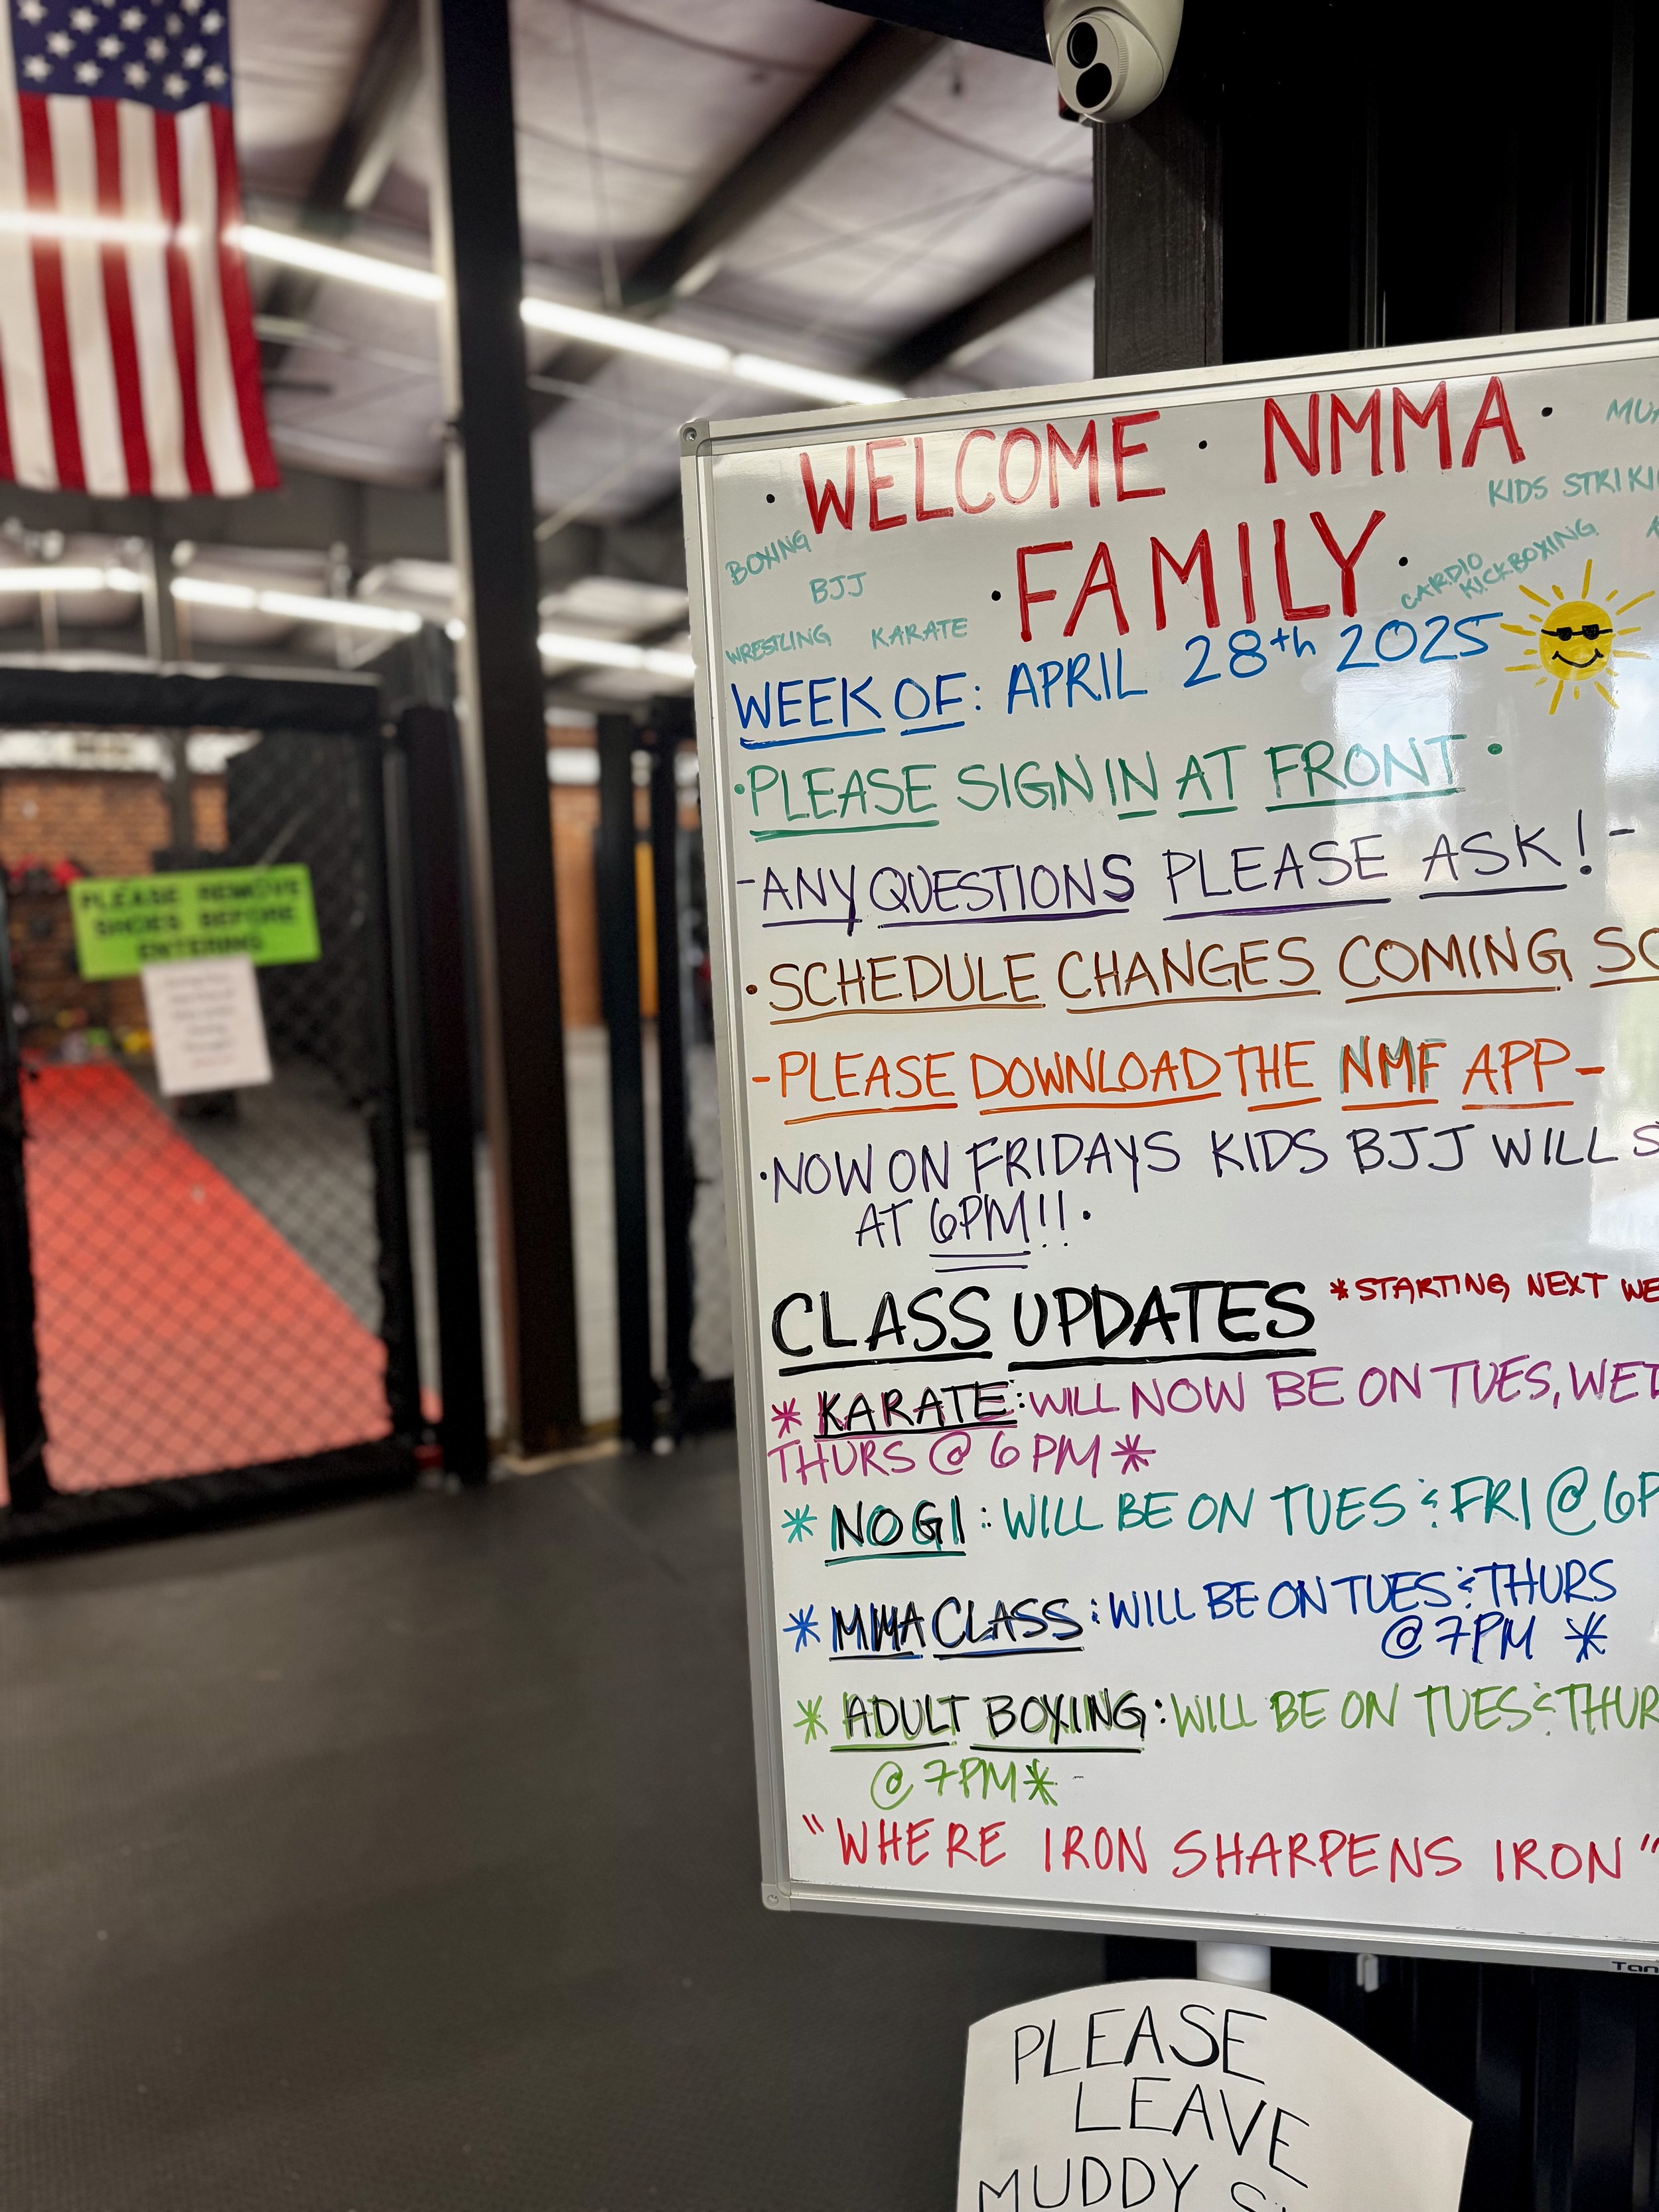 WELCOME · NMMA ·
· FAMILY ·
BOXING
BJJ
WRESTLING KARATE
KIDS
CARDIO
KICKBOXING
WEEK OF: APRIL 28th 2025
· PLEASE SIGN IN AT FRONT ·
- ANY QUESTIONS PLEASE ASK! -
· SCHEDULE CHANGES COMING
- PLEASE DOWNLOAD THE NMF APP -
· NOW ON FRIDAYS KIDS BJJ WILL
AT 6PM!! ·
CLASS UPDATES * STARTING NEXT
* KARATE: WILL NOW BE ON TUES,
THURS @ 6 PM *
* NO GI: WILL BE ON TUES & FRI @
* MMA CLASS: WILL BE ON TUES & THURS
@ 7PM *
* ADULT BOXING: WILL BE ON TUES & THUR
@ 7PM * -
"WHERE IRON SHARPENS IRON"
PLEASE
LEAVE
MUDDY
PLEASE REMOVE
SHOES BEFORE
ENTERING